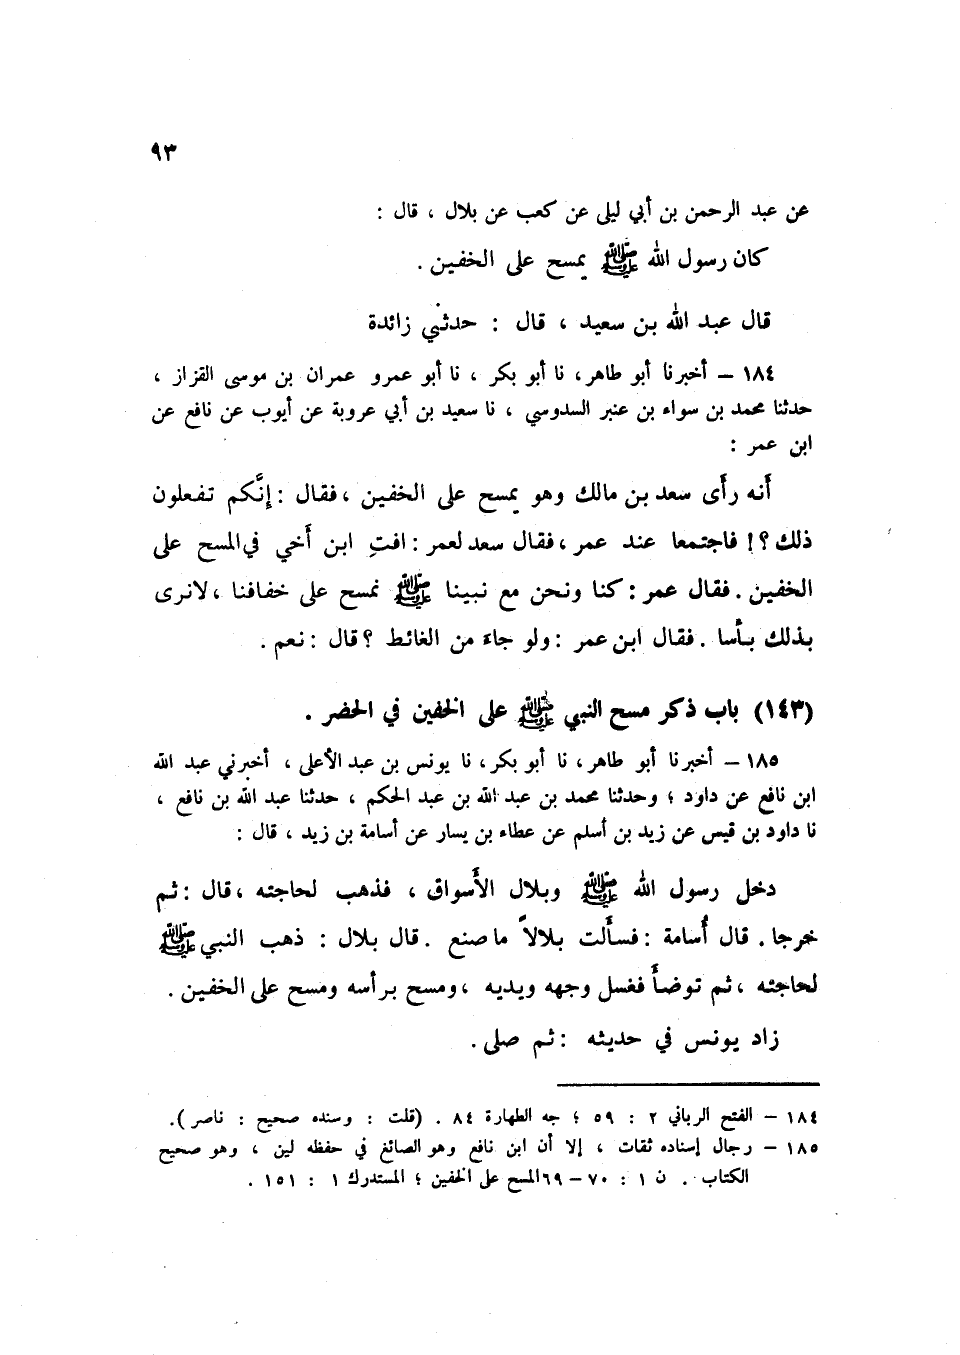 ٩٣
عن عبد الرحمن بن أبي ليلى عن كعب عن بلال ، قال :
كان رسول الله ﷺ يمسح على الخفين .
قال عبد الله بن سعيد ، قال : حدثني زائدة
١٨٤ – أخبرنا أبو طاهر، نا أبو بكر ، نا أبو عمرو عمران بن موسى القزاز ،
حدثنا محمد بن سواء بن عنبر السدوسي ، نا سعيد بن أبي عروبة عن أيوب عن نافع عن
ابن عمر :
أنه رأى سعد بن مالك وهو يمسح على الخفين ، فقال : إنَّكم تفعلون
ذلك ؟! فاجتمعا عند عمر ، فقال سعد لعمر : افتِ ابن أخي في المسح على
الخفين . فقال عمر : كنا ونحن مع نبينا ﷺ نمسح على خفافنا ، لا نرى
بذلك بأسا . فقال ابن عمر : ولو جاء من الغائط ؟ قال : نعم .
(١٤٣) باب ذكر مسح النبي ﷺ على الخفين في الحضر .
١٨٥ – أخبرنا أبو طاهر، نا أبو بكر، نا يونس بن عبد الأعلى ، أخبرني عبد الله
ابن نافع عن داود ؛ وحدثنا محمد بن عبد الله بن عبد الحكم ، حدثنا عبد الله بن نافع ،
نا داود بن قيس عن زيد بن أسلم عن عطاء بن يسار عن أسامة بن زيد ، قال :
دخل رسول الله ﷺ وبلال الأسواق ، فذهب لحاجته ، قال : ثم
خرجا . قال أُسامة : فسألت بلالاً ما صنع . قال بلال : ذهب النبي ﷺ
لحاجته ، ثم توضأ فغسل وجهه ويديه ، ومسح برأسه ومسح على الخفين .
زاد يونس في حديثه : ثم صلى .
١٨٤ – الفتح الرباني ٢ : ٥٩ ؛ جه الطهارة ٨٤ . (قلت : وسنده صحيح : ناصر ).
١٨٥ – رجال إسناده ثقات ، إلا أن ابن نافع وهو الصائغ في حفظه لين ، وهو صحيح
الكتاب . ن ١ : ٧٠ – ٦٩ المسح على الخفين ؛ المستدرك ١ : ١٥١ .